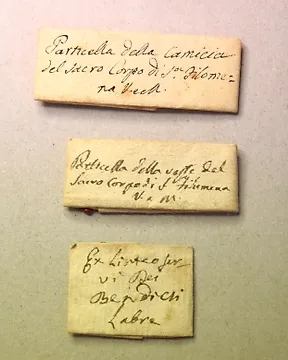 Particella della Camicia
del Sacro Corpo di S.ta Filome-
na V. e M.
Particella della veste del
Sacro Corpo di S. Filumena
V. e M.
Ex Linteo Ser-
vi Dei
Benedicti
Labre